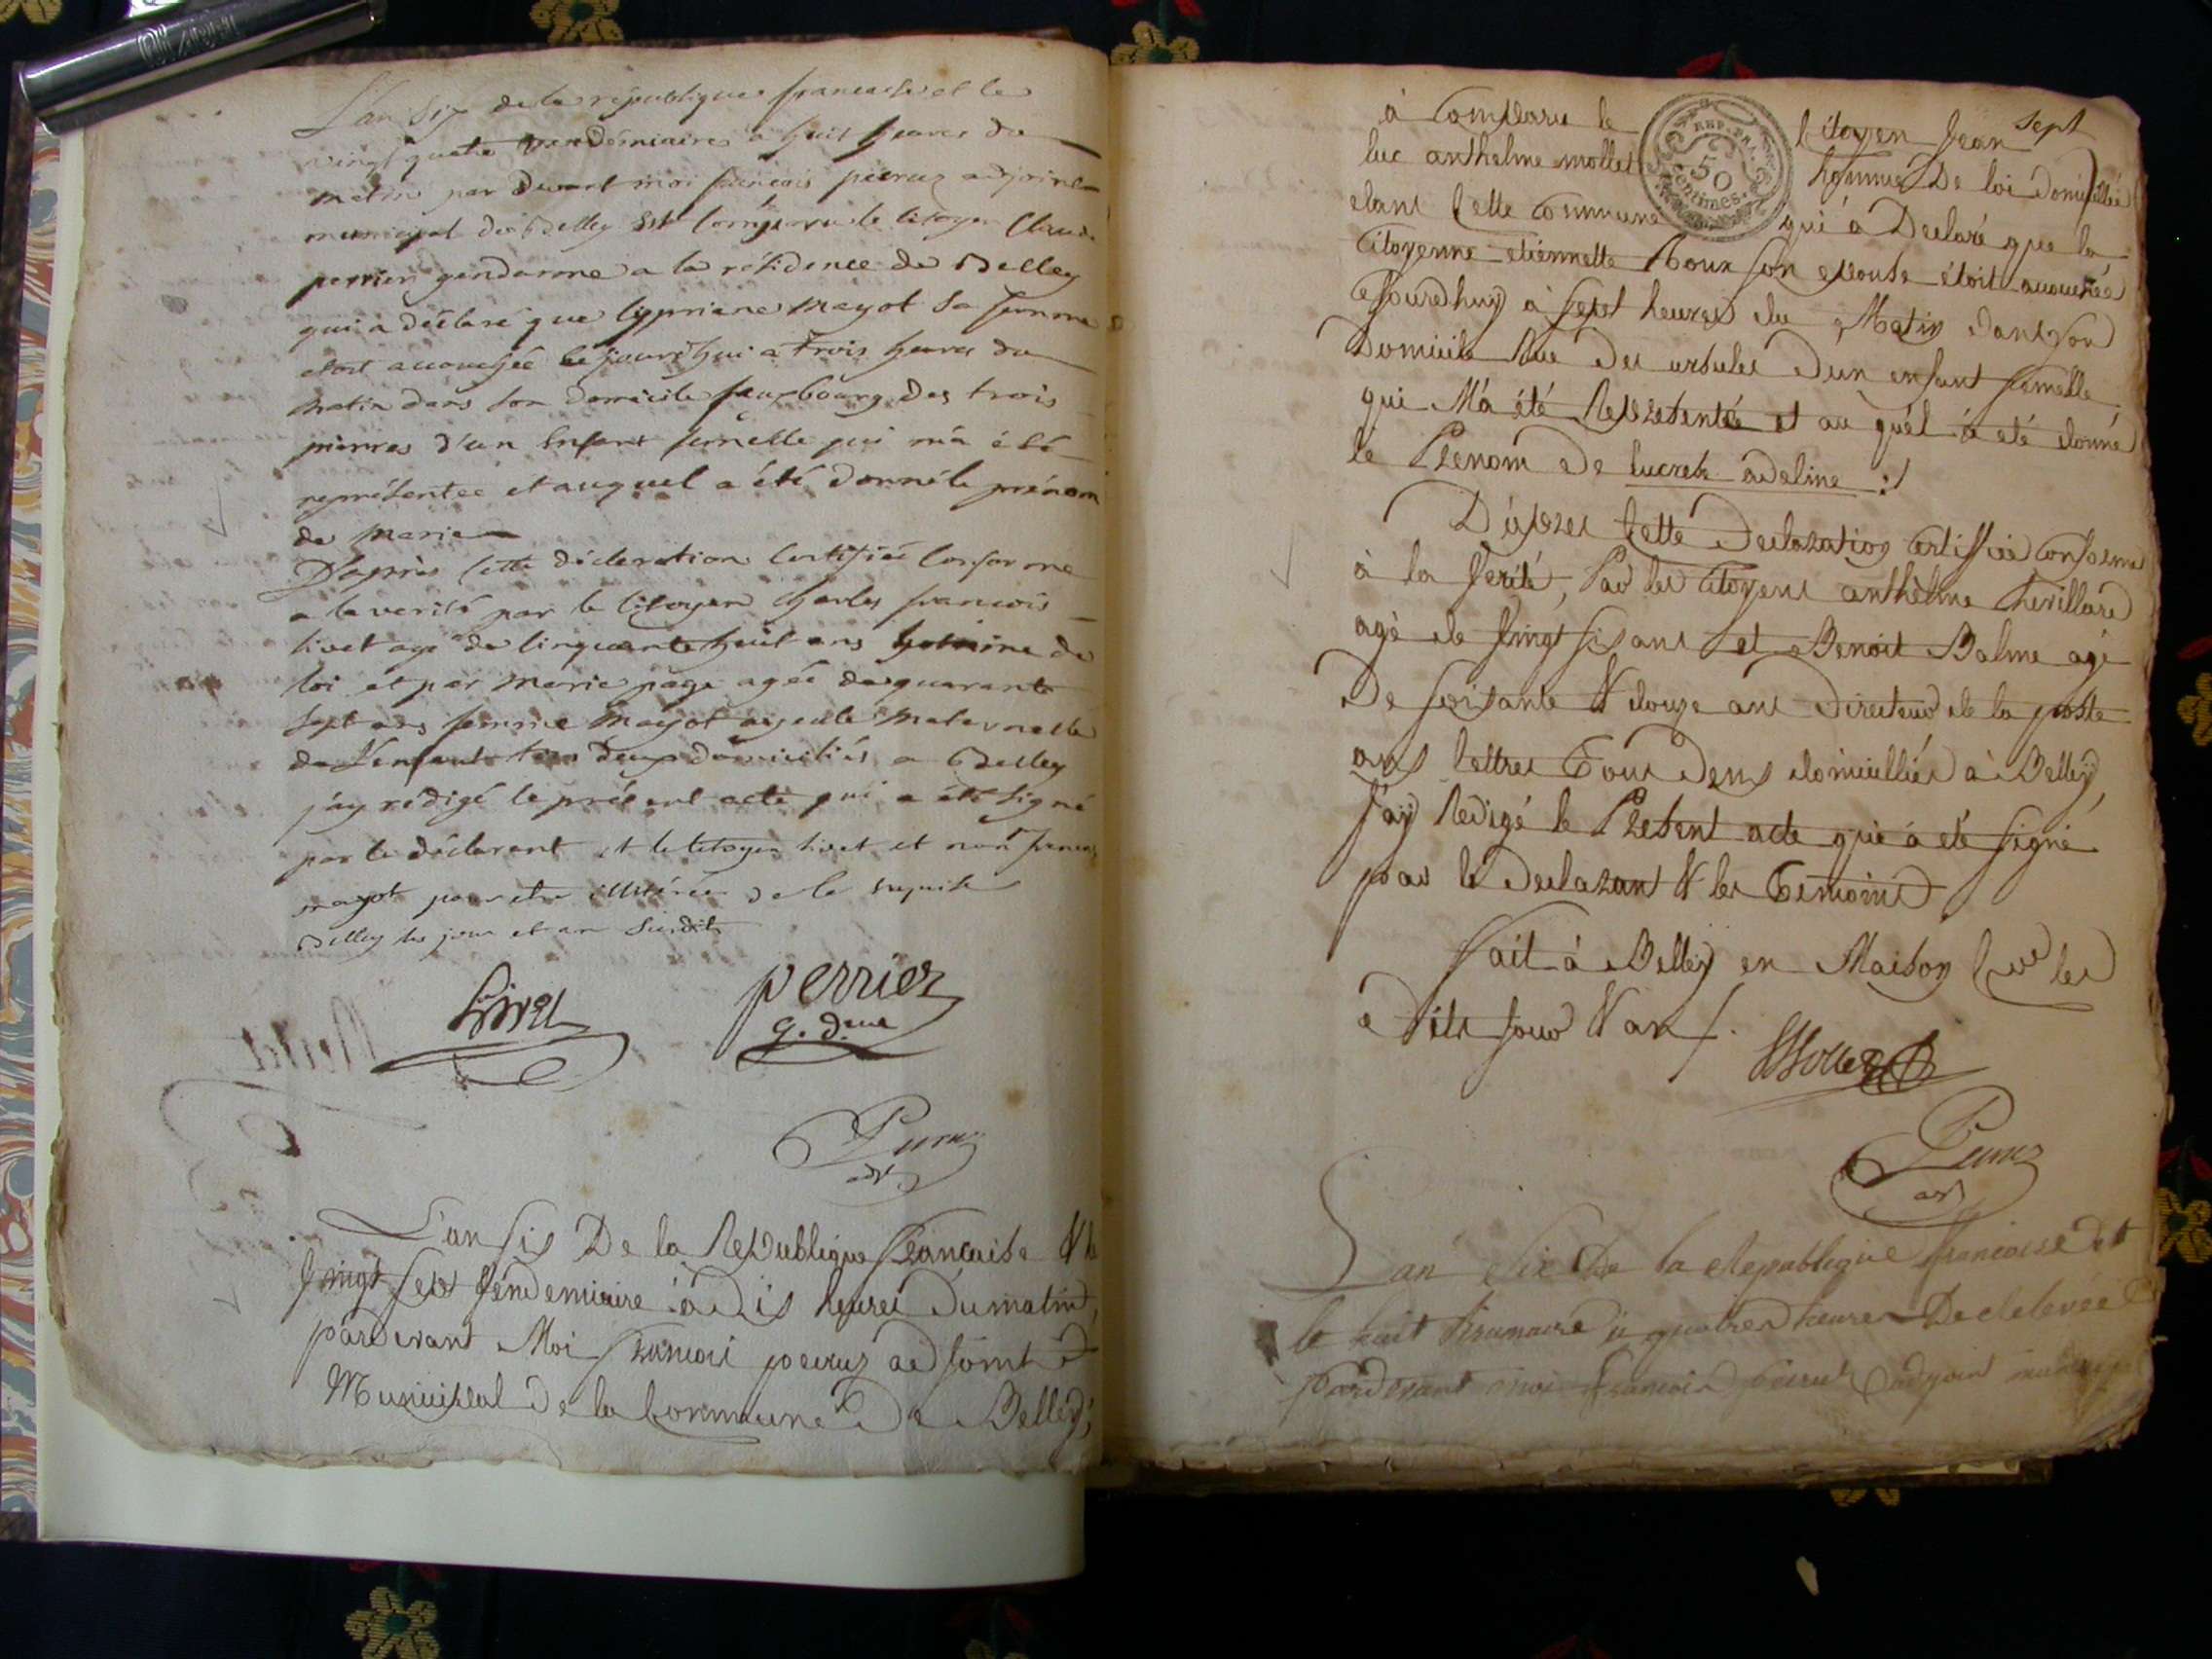 L'an six de la republique francaise et le
vingt quatre vendémiaire a huit heures du
matin par devant moi francois peiruz adjoint
municipal de Belley est comparu le citoyen Claude
perrier gendarme a la résidence de Belley
qui a déclaré que cypriene mayot sa femme
etoit accouchée ce jourd'hui a trois heures du
matin dans son domicile fauxbourg des trois
pierres d'un enfant femelle qui m'a été
représentée et auquel a été donné le prénom
de marie
D'après cette déclaration certifiée conforme
a la verité par le citoyen charles francois
livet agé de cinquante huit ans homme de
loi et par marie page agée de quarante
sept ans femme mayot ayeule maternelle
de l'enfant tous deux domiciliés a Belley
j'ay rédigé le présent acte qui a été signé
par le déclarant et le citoyen livet et non
mayot pour etre illitérée de le requise
Belley les jour et an susdits
Livet
perrier
g. d.me
Peiruz
adj
L'an six De la Republique francaise & le
vingt sept vendemiaire à dix heures du matin,
pardevant Moi francois peiruz adjoint
Municipal de la Commune De Belleÿ;
sept
à Comparu le Citoyen Jean
luc anthelme mollet homme De loi domicillié
dans Cette Commune qui a Declaré que la
Citoyenne etiennette Roux son epouse étoit accouchée
cejourdhuy à sept heures du Matin dans son
Domicile Rue des ursules d'un enfant femelle
qui M'a été Representée et au quel a eté donné
le Prenom de lucrece adeline :/
REP. FRA.
50
centimes.
D'après Cette Declaration certiffiée conforme
à la verité, Par les Citoyens anthèlme Chevillard
agé de vingt six ans et Benoit Balme agé
De soixante & douze ans Directeur de la poste
aux lettres Tous Deux domicilliés à Belleÿ,
J'aÿ Redigé le Present acte qui à eté signé
par le Declarant & les Temoins
fait à Belleÿ en Maison Cne les
dits jour & an /.
Mollet
Peiruz
adj
L'an six De la Republique francaise et
le huit Brumaire à quatre heures De relevée
pardevant moi francois peiruz adjoint municipal